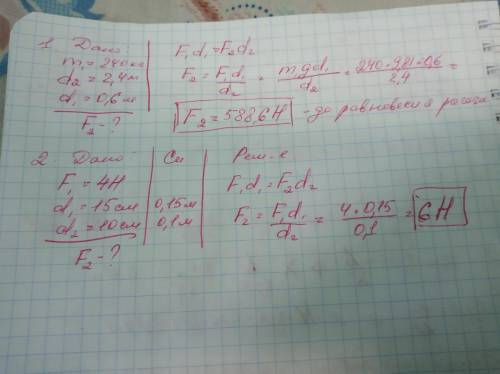 1 Дано:
m₁ = 240 кг
d₂ = 2,4 м
d₁ = 0,6 м
F₂ - ?
F₁d₁ = F₂d₂
F₂ = F₁d₁/d₂ = m₁gd₁/d₂ = 240·9,81·0,6/2,4 =
F₂ = 588,6 Н - до равновесия
2 Дано: Си
F₁ = 4Н
d₁ = 15 см 0,15 м
d₂ = 10 см 0,1 м
F₂ - ?
F₁d₁ = F₂d₂
F₂ = F₁d₁/d₂ = 4·0,15/0,1 = 6Н